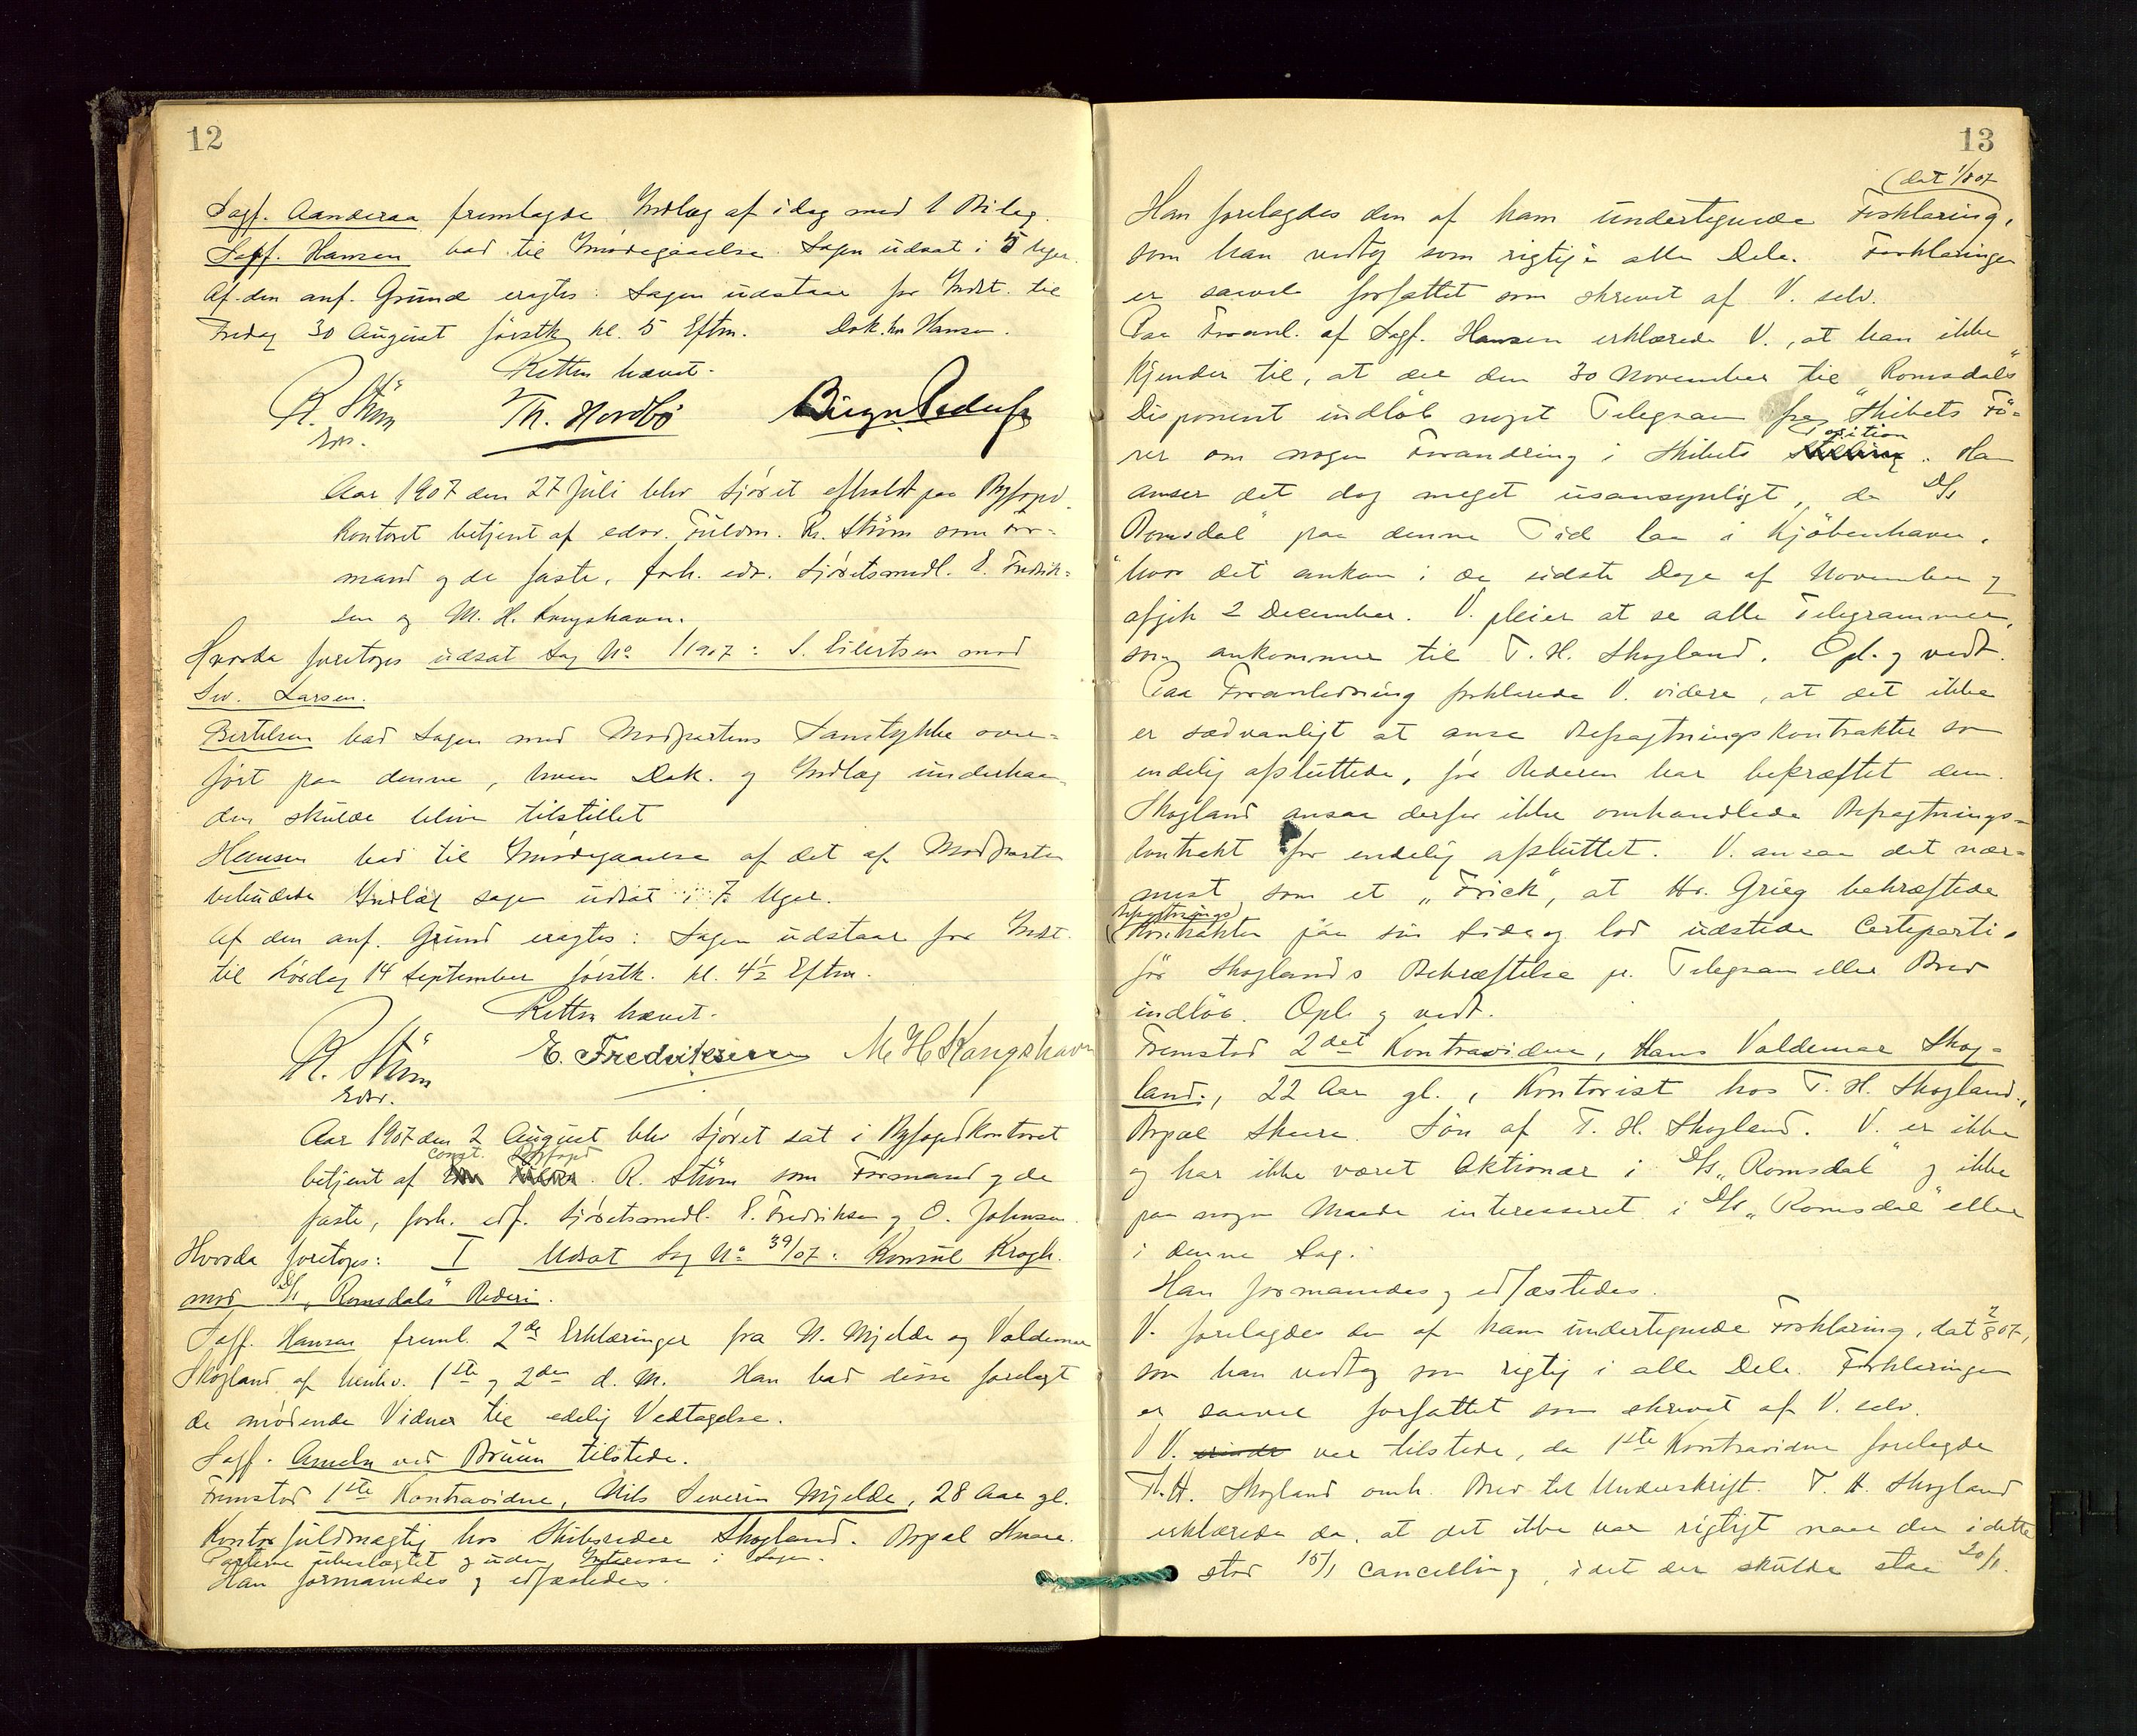 12
Sagf. Aanderaa fremlagde Indlæg af idag med 1 Bilag.
Sagf. Hansen bad til Imødegaaelse Sagen udsat i 5 Uger.
Af den anf. Grund eragtes: Sagen udstaar for Indst. til
Fredag 30 August førstk. kl. 5 Eftm. Dok. hr Hansen.
Retten hævet.
R. Strøm Th. Nordbö
Edsv.
Aar 1907 den 27 Juli blev Sjøret afholdt paa Byfoged
kontoret betjent af edsv. Fuldm. R. Strøm som For-
mand og de faste, forh. eds. Sjøretsmedl. E. Fredrik-
sen og M. H. Kongshavn.
Hvorda foretoges udsat Sag No 1/1907: S. Eilertsen mod
Sev. Larsen.
Bertelsen bad Sagen med Modpartens Samtykke over-
ført paa denne, hvem Dok. og Indlæg underhaan-
den skulde blive tilstillet
Hansen bad til Imødegaaelse af det af Modparten
bebudede Indlæg sagen udsat i 7 Uger.
Af den anf. Grund eragtes: Sagen udstaar for Indst.
til Lørdag 14 September førstk. kl. 4½ Eftm.
Retten hævet.
R. Strøm E. Fredriksen M H Kongshavn
Edsv.
Aar 1907 den 2 August blev Sjøret sat i Byfogedkontoret
const. Byfoged
betjent af R. Strøm som Formand og de
faste, forh. edf. Sjøretsmedl. E. Fredriksen og O. Johnsen.
Hvorda foretoges: I Udsat Sag No 39/07: Konsul Krogh
mod D/S „Romsdals" Rederi.
Sagf. Hansen freml. 2de Erklæringer fra N. Mjelde og Valdemar
Skogland af henhv. 1ste og 2den d. M. Han bad disse forelagt
de mødende Vidner til edelig Vedtagelse.
Sagf. Ameln ved Bruun tilstede.
Fremstod 1ste Kontravidne, Nils Severin Mjelde, 28 Aar gl.
Kontorfuldmægtig hos Skibsreder Skogland. Bopæl Skaare.
Parterne ubeslægtet og uden Interesse i Sagen.
Han formanedes og edfæstedes.
13
(dat 1/8 07
Han forelagdes den af ham undertegnede Forklaring,
som han vedtog som rigtig i alle Dele. Forklaringen
er saavel forfattet som skrevet af V. selv.
Paa Foranl. af Sagf. Hansen erklærede V., at han ikke
kjender til, at der den 30 November til „Romsdals"
Disponent indløb noget Telegram fra Skibets Fø-
Position
rer om nogen Forandring i Skibets Stilling. Han
anser det dog meget usansynligt, da D/S
„Romsdal" paa denne Tid laa i Kjøbenhavn,
hvor det ankom i de sidste Dage af November og
afgik 2 December. V. pleier at se alle Telegrammer,
som ankommer til T. H. Skogland. Opl. og vedt.
Paa Foranledning forklarede V. videre, at det ikke
er sædvanligt at anse Befragtningskontrakter som
endelig afsluttede, før Rederen har bekræftet dem.
Skogland ansaa derfor ikke omhandlede Befragtnings-
kontrakt for endelig afsluttet. V. ansaa det nær-
mest som et „Trick", at Hr. Grieg bekræftede
Befragtnings
Kontrakten paa sin Side og lod udstede Certeparti,
før Skoglands Bekræftelse pr. Telegram eller Brev
indløb. Opl. og vedt.
Fremstod 2det Kontravidne, Hans Valdemar Skog-
land, 22 Aar gl., Kontorist hos T. H. Skogland,
Bopæl Skaare. Søn af T. H. Skogland. V. er ikke
og har ikke været Aktionær i D/S „Romsdal" og ikke
paa nogen Maade interesseret i D/S „Romsdal" eller
i denne Sag.
Han formanedes og edfæstedes.
V. forelagdes den af ham undertegnede Forklaring, dat 2/8 07,
som han vedtog som rigtig i alle Dele. Forklaringen
er saavel forfattet som skrevet af V. selv.
V. var tilstede, da 1ste Kontravidne forelagde
T. H. Skogland omh. Brev til Underskrift. T. H. Skogland
erklærede da, at det ikke var rigtigt naar der i dette
stod 15/1 cancelling, idet der skulde staa 20/1.